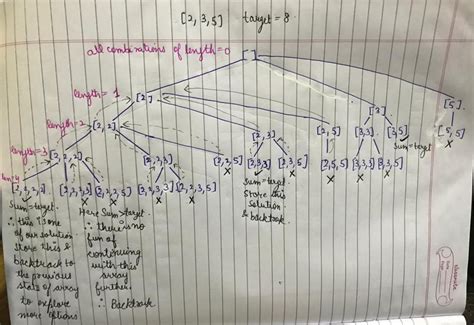 [2,3,5] target = 8
all combinations of length=0 [ ]
length= 1 [2] [3] [5]
length=2 [2,2] [2,3] [2,5] [3,3] [3,5] [5,5]
X
sum=target
length=3 [2,2,2] [2,2,3] [2,2,5] [2,3,3] [2,3,5] [2,5,5] [3,3,3] [3,3,5]
X X X X X
len=4 [2,2,2,2] [2,2,2,3] [2,2,2,5] [2,2,3,3] [2,2,3,5]
X X X X
Sum=target.
∴ this is one
of our solution
store this &
backtrack to
the previous
state of array
to explore
more options
Here Sum>target
∴ there is no
fun of
continuing
with this
array
further.
∴ Backtrack
sum=target
Store this
solution
& backtrack.